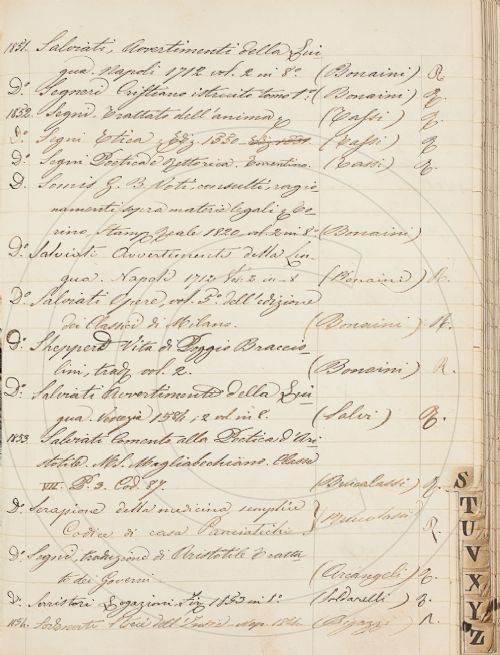 1851. Salviati, Avvertimenti della Lin-
gua. Napoli 1712 vol. 2 in 8° (Bonaini) R
D° Segneri Cristiano istruito tomo 1° (Bonaini) R.
1852. Segni. Trattato dell'anima (Tassi) R.
D° Segni Etica Ediz. 1550 (Tassi) R
D° Segni Poetica e Rettorica. (Tassi) R.
D. G. B. Voti, consulti, ragio
namenti sopra materie legali To-
rino Stamp. Reale 1820, vol. 2 in 8° (Bonaini)
D° Salviati Avvertimenti della Lin-
gua. Napoli 1712 2 in 8 (Bonaini) R.
D° Salviati Opere, vol. 5° dell'edizione
dei Classici di Milano. (Bonaini) R.
D° Shepperd Vita di Poggio Braccio-
lini, trad. vol. 2. (Bonaini) R.
D° Salviati Avvertimenti della Lin-
gua. Venezia 1584, 2 vol. in 8. (Salvi) R.
1853 Salviati Comento alla Poetica d'Ari-
stotile. Ms. Magliabechiano. Classe
VII. P. 3. Cod. 87. (Brucalassi) R.
D° Serapione della medicina semplice
Codice di casa Panciatichi R.
D° Segni, traduzione di Aristotile Tratta-
to dei Governi (Arcangeli) R.
D° Serristori Legazioni Fir. 1853 in 8° (Soldarelli) R.
1854. (Bigazzi) R.
S
T
U
V
X
Y
Z